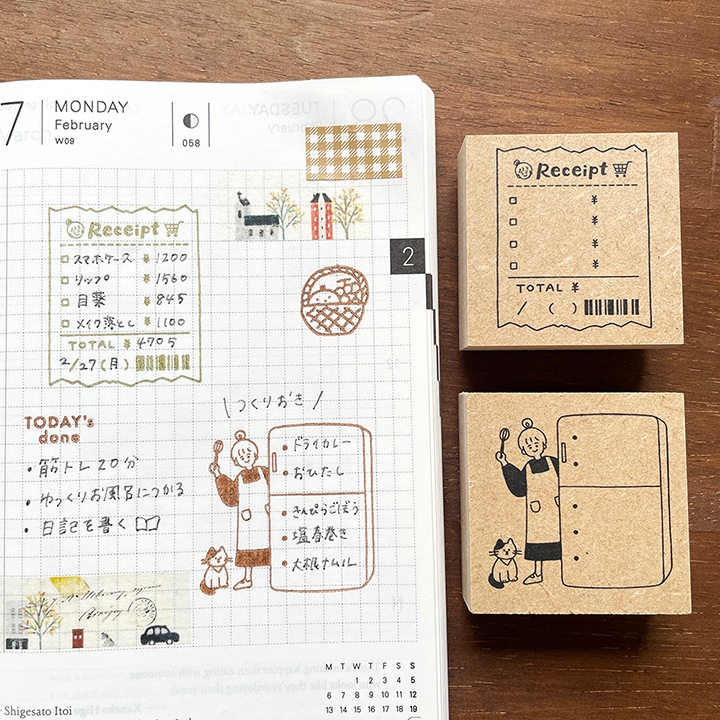 7
MONDAY
February
W09
058
2
Receipt
スマホケース ¥1200
リップ ¥1560
目薬 ¥845
メイク落とし ¥1100
TOTAL ¥4705
2/27(月)
TODAY's
done
・筋トレ20分
・ゆっくりお風呂につかる
・日記を書く
\つくりおき/
・ドライカレー
・おひたし
・きんぴらごぼう
・塩春巻き
・大根ナムル
M T W T F S S
1 2 3 4 5
6 7 8 9 10 11 12
13 14 15 16 17 18 19
Shigesato Itoi
Receipt
¥
¥
¥
¥
TOTAL ¥
/ ( )